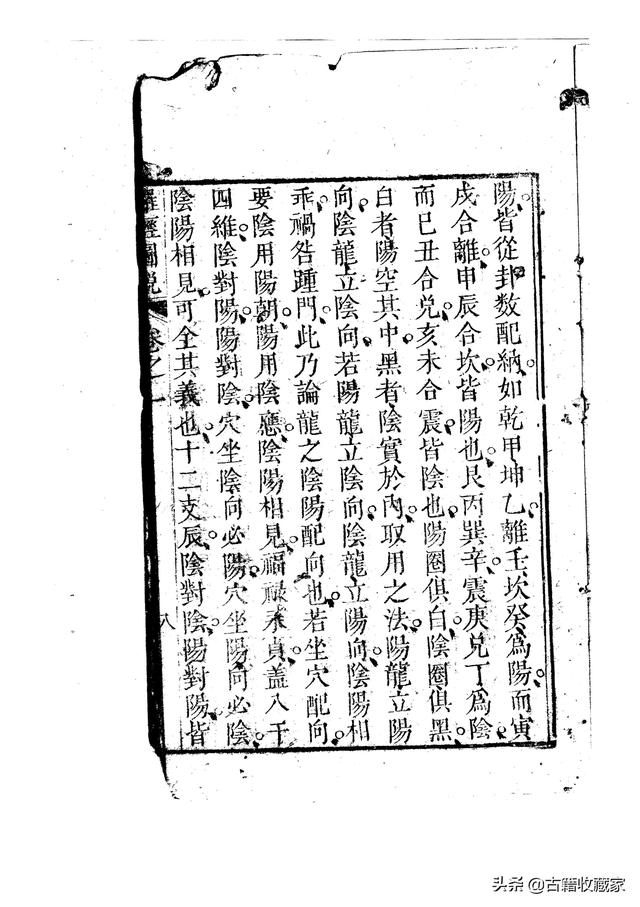 陽皆從卦数配納如乾甲坤乙離壬坎癸爲陽而寅
戌合離申辰合坎皆陽也艮丙巽辛震庚兑丁爲陰
而巳丑合兑亥未合震皆陰也陽圈俱白陰圈俱黑
白者陽空其中黑者陰實於内取用之法陽龍立陽
向陰龍立陰向若陽龍立陰向陰龍立陽向陰陽相
乖禍咎踵門此乃論龍之陰陽配向也若坐穴配向
要陰用陽朝陽用陰應陰陽相見福禄永貞盖八干
四維陰對陽陽對陰穴坐陰向必陽穴坐陽向必陰
陰陽相見可全其義也十二支辰陰對陰陽對陽皆
羅經圖説 卷之一
八
头条 @古籍收藏家